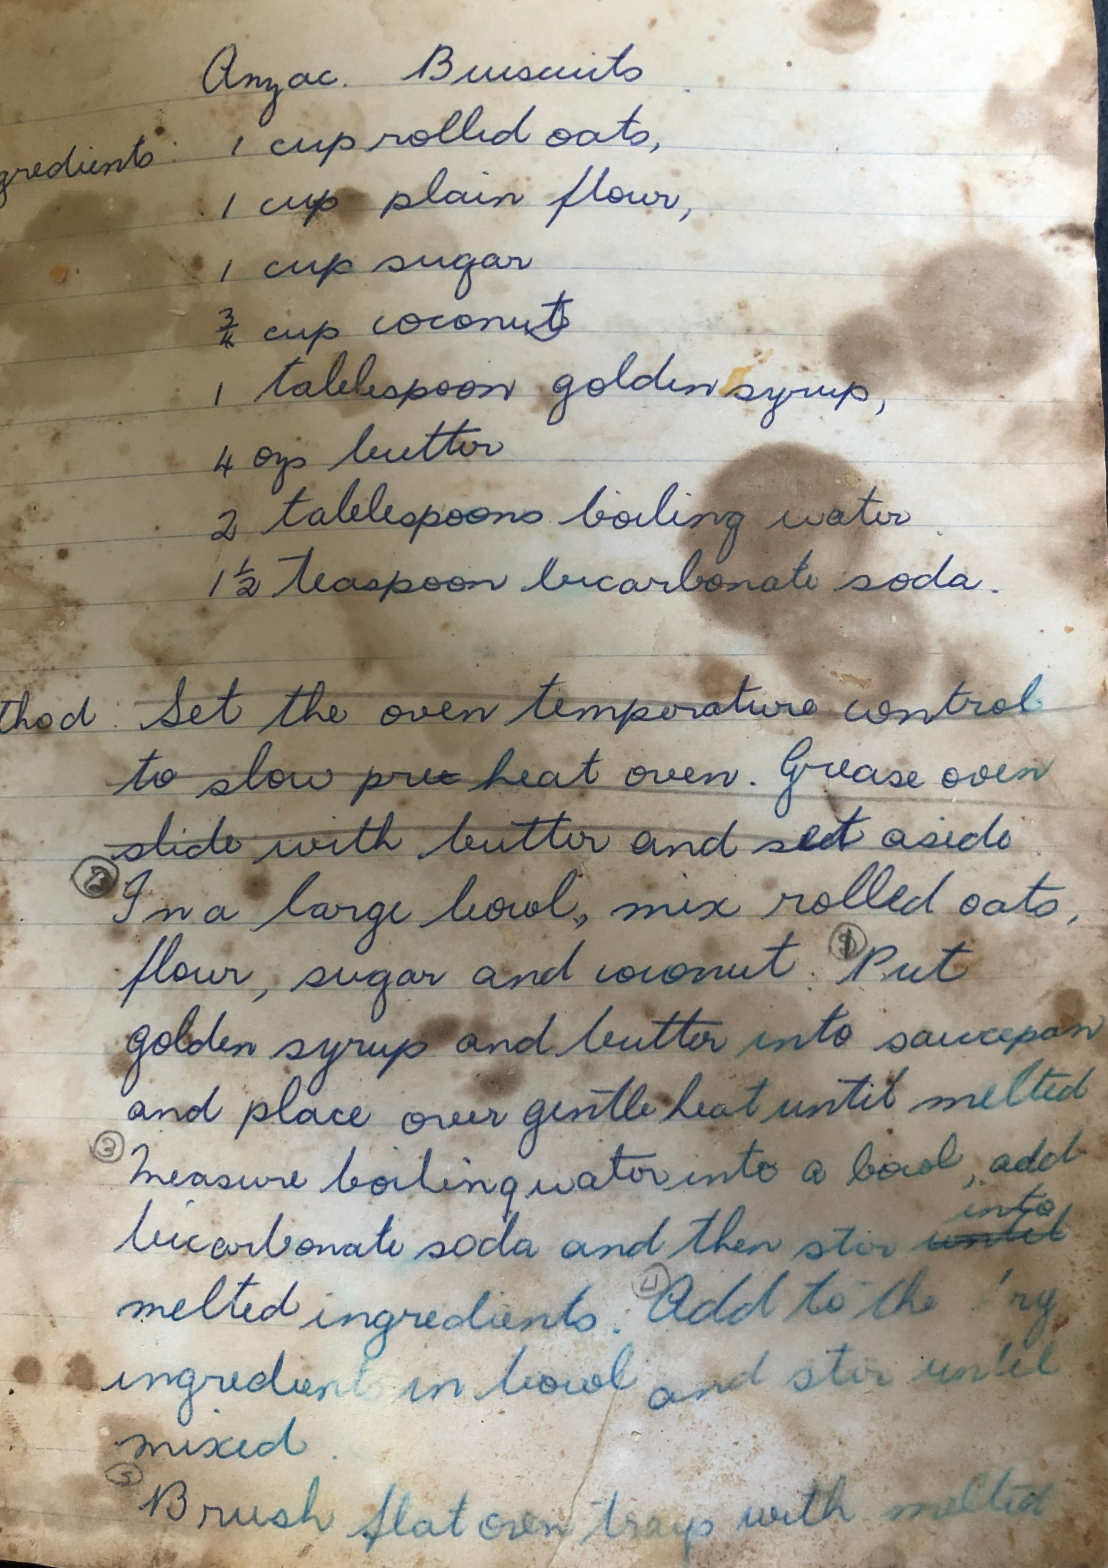 Anzac. Biuscuits
gredients: 1 cup rolled oats,
1 cup plain flour,
1 cup sugar
3/4 cup coconut
1 tablespoon golden syrup,
4 ozs butter
2 tablespoons boiling water
1 1/2 teaspoon bicarbonate soda.
thod. Set the oven temperature control
to slow pre heat oven. Grease oven
slide with butter and set aside
② In a large bowl, mix rolled oats,
flour, sugar and coconut. ① Put
golden syrup and butter into saucepan
and place over gentle heat until melted
③ Measure boiling water into a bowl, add
into
bicarbonate soda and then stir until
melted ingredients. ④ Add to the ry
ingredient in bowl and stir until
mixed.
⑤ Brush flat oven trays with melted